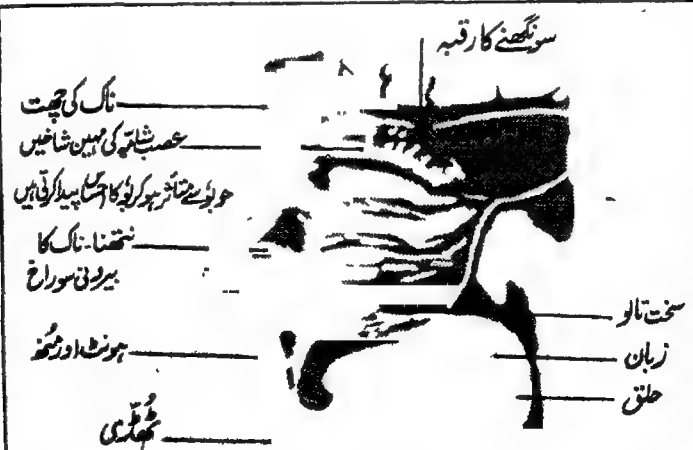 سونگھنے کا رقبہ
ناک کی چھت
عصب شامّہ کی مہین شاخیں
جو بُو سے متاثر ہو کر بُو کا احساس پیدا کرتی ہیں
نتھنا۔ ناک کا
بیرونی سوراخ
ہونٹ اور مُنھ
ٹھُڈّی
سخت تالو
زبان
حلق